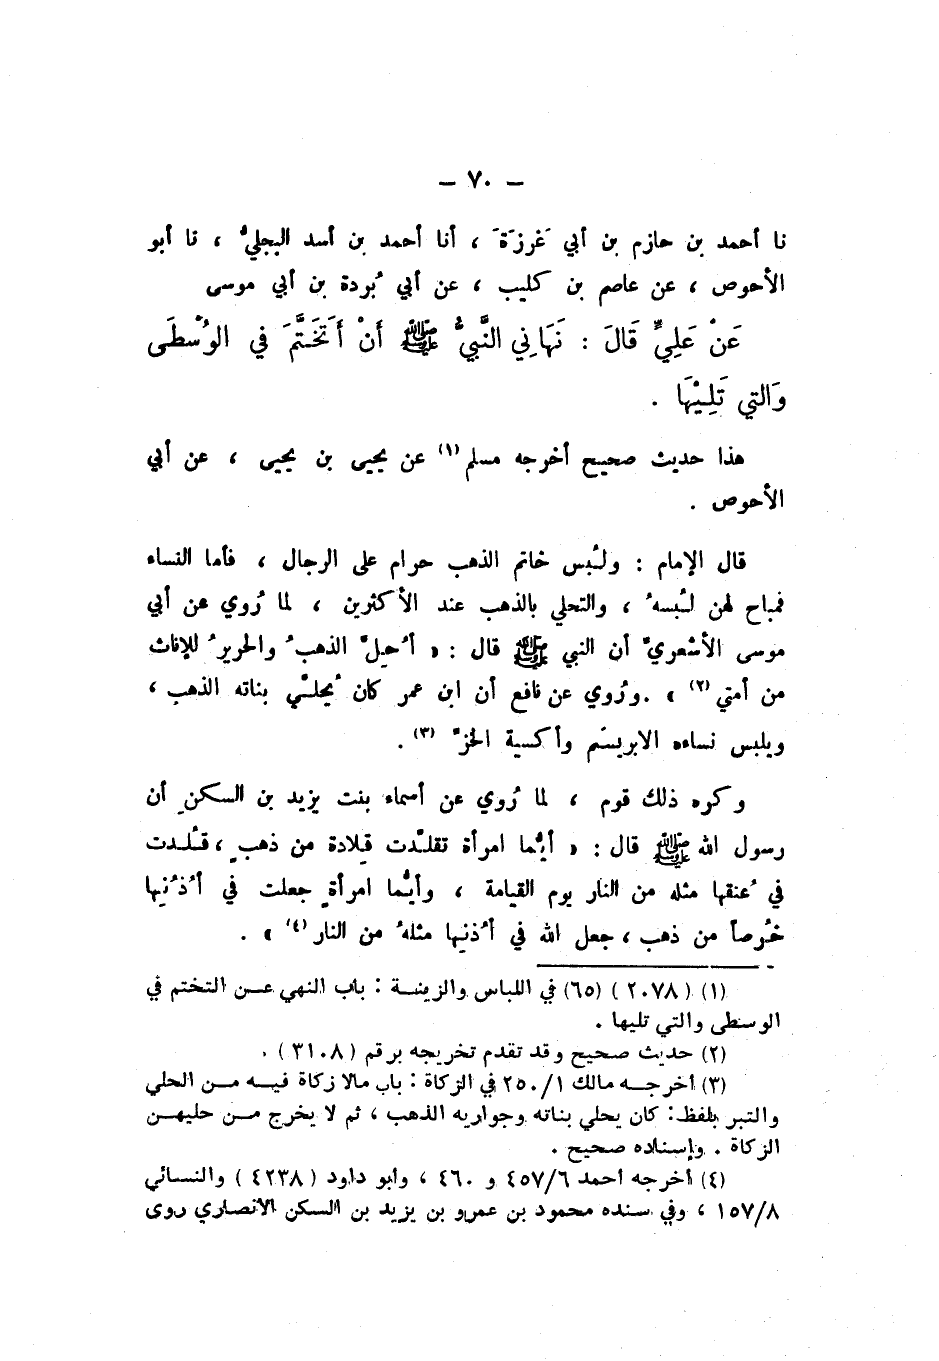 – ٧٠ –
نا أحمد بن حازم بن أبي غَرزَةَ ، أنا أحمد بن أسد البجليُّ ، نا أبو
الأحوص ، عن عاصم بن كليب ، عن أبي بُردة بن أبي موسى
عَنْ عَلِيٍّ قَالَ : نَهَانِي النَّبِيُّ ﷺ أَنْ أَتَخَتَّمَ فِي الوُسْطَى
وَالتي تَلِيْهَا .
هذا حديث صحيح أخرجه مسلم (١) عن يحيى بن يحيى ، عن أبي
الأحوص .
قال الإمام : ولُبس خاتم الذهب حرام على الرجال ، فأما النساء
فمباح لهن لُبسهُ ، والتحلي بالذهب عند الأكثرين ، لما رُوي عن أبي
موسى الأشعريّ أن النبي ﷺ قال : « أُحِلَّ الذهبُ والحريرُ للإناث
من أمتي (٢) » . ورُوي عن نافع أن ابن عمر كان يُحلّي بناته الذهب ،
ويلبس نساءه الابريسَم وأكسية الخزّ (٣) .
وكره ذلك قوم ، لما رُوي عن أسماء بنت يزيد بن السكنِ أن
رسول الله ﷺ قال : « أيُّما امرأة تقلّدت قِلادة من ذهبٍ ، قُلّدت
في عُنقها مثله من النار يوم القيامة ، وأيُّما امرأةٍ جعلت في أُذُنِها
خُرصاً من ذهب ، جعل الله في أُذنِها مثلهُ من النار (٤) » .
(١) ( ٢٠٧٨ ) (٦٥) في اللباس والزينة : باب النهي عن التختم في
الوسطى والتي تليها .
(٢) حديث صحيح وقد تقدم تخريجه برقم ( ٣١٠٨ ) .
(٣) أخرجه مالك ٢٥٠/١ في الزكاة : باب مالا زكاة فيه من الحلي
والتبر بلفظ: كان يحلي بناته وجواريه الذهب ، ثم لا يخرج من حليهن
الزكاة . وإسناده صحيح .
(٤) أخرجه أحمد ٤٥٧/٦ و ٤٦٠ ، وأبو داود ( ٤٢٣٨ ) والنسائي
١٥٧/٨ ، وفي سنده محمود بن عمرو بن يزيد بن السكن الانصاري روى